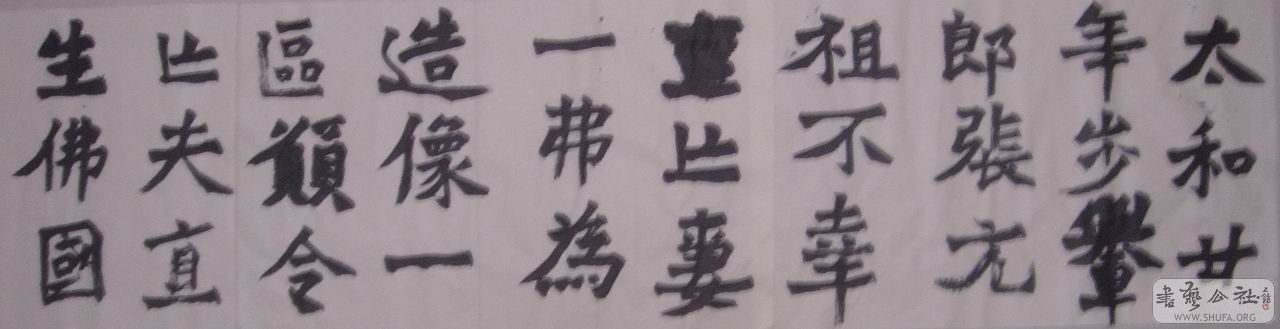 太和廿
年步轝
郎張元
祖不幸
喪亡妻
一弗為
造像一
區願令
亡夫直
生佛國
書藝公社
WWW.SHUFA.ORG